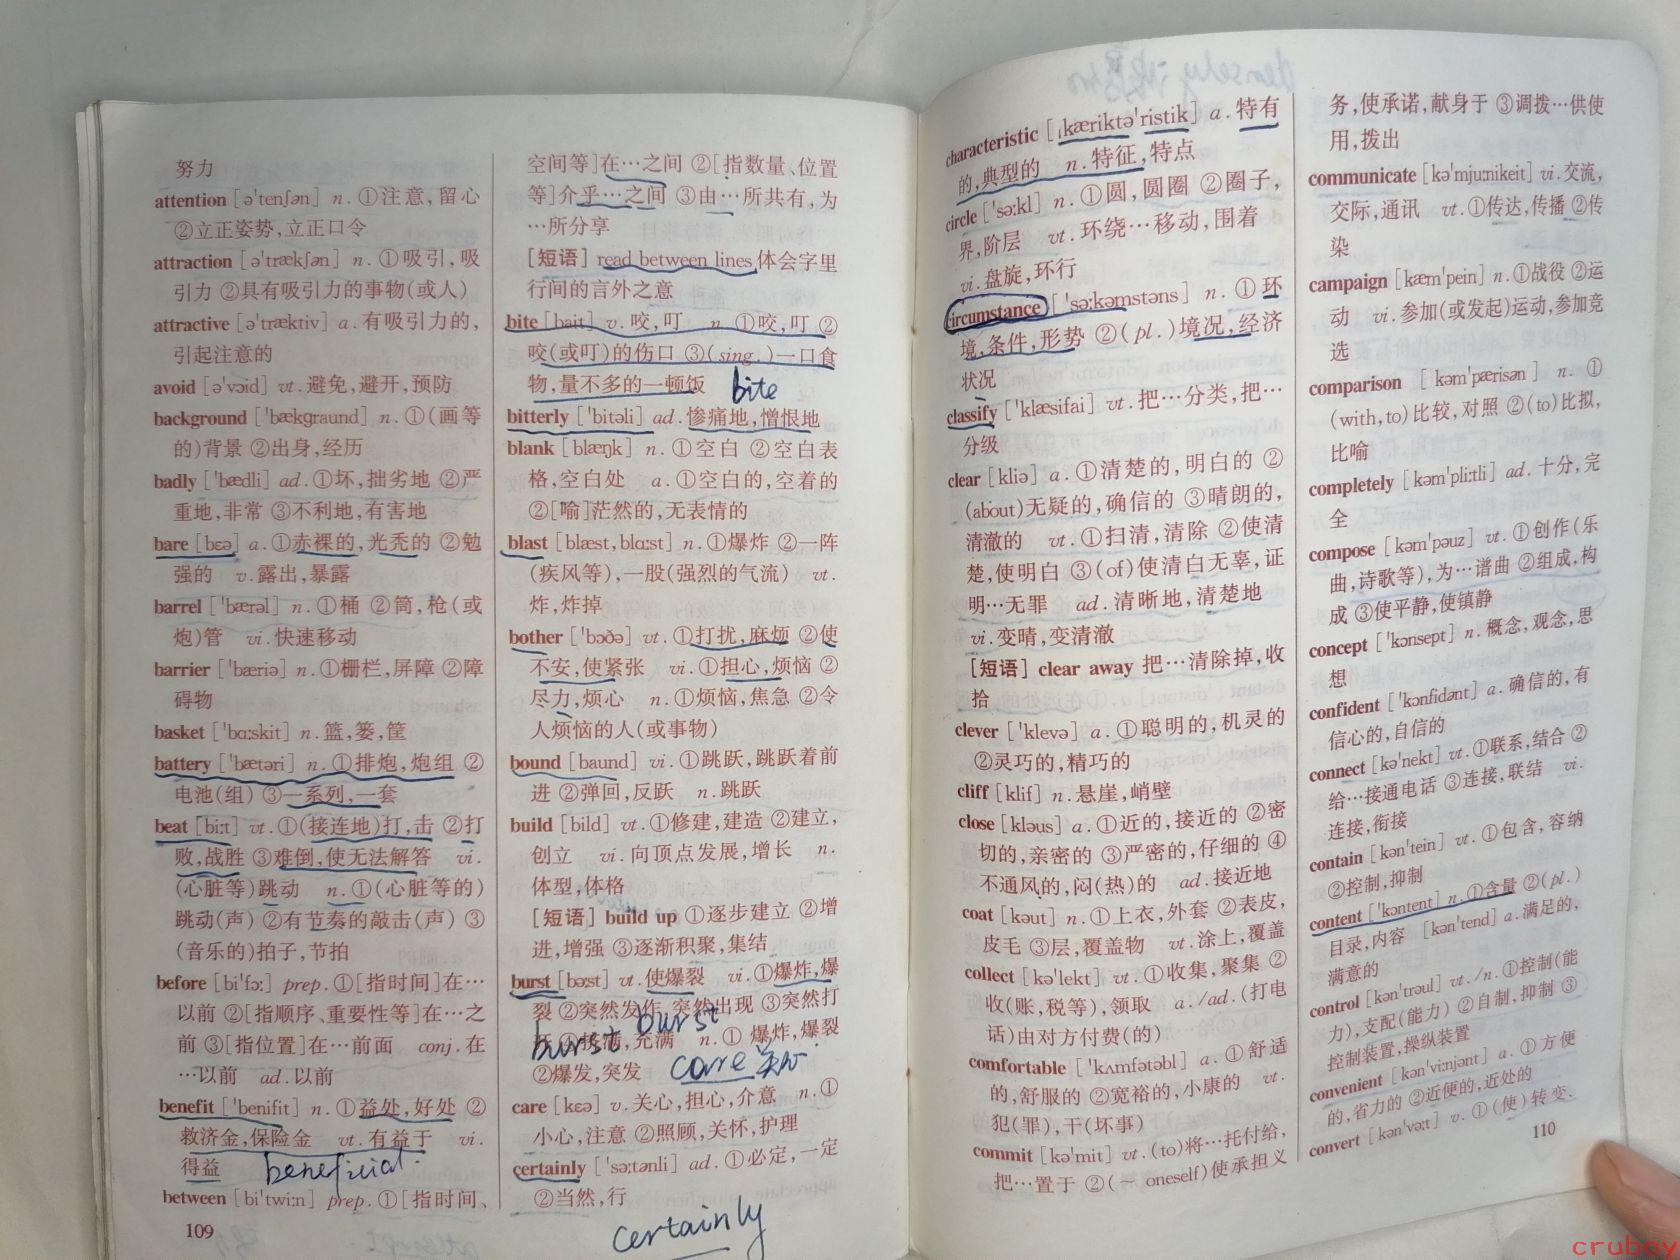 努力
attention [ə'tenʃən] n. ①注意,留心
②立正姿势,立正口令
attraction [ə'trækʃən] n. ①吸引,吸
引力 ②具有吸引力的事物(或人)
attractive [ə'træktiv] a. 有吸引力的,
引起注意的
avoid [ə'vɔid] vt. 避免,避开,预防
background ['bækgraund] n. ①(画等
的)背景 ②出身,经历
badly ['bædli] ad. ①坏,拙劣地 ②严
重地,非常 ③不利地,有害地
bare [bɛə] a. ①赤裸的,光秃的 ②勉
强的 v. 露出,暴露
barrel ['bærəl] n. ①桶 ②筒,枪(或
炮)管 vi. 快速移动
barrier ['bæriə] n. ①栅栏,屏障 ②障
碍物
basket ['bɑːskit] n. 篮,篓,筐
battery ['bætəri] n. ①排炮,炮组 ②
电池(组) ③一系列,一套
beat [biːt] vt. ①(接连地)打,击 ②打
败,战胜 ③难倒,使无法解答 vi.
(心脏等)跳动 n. ①(心脏等的)
跳动(声) ②有节奏的敲击(声) ③
(音乐的)拍子,节拍
before [bi'fɔː] prep. ①[指时间]在…
以前 ②[指顺序、重要性等]在…之
前 ③[指位置]在…前面 conj. 在
…以前 ad. 以前
benefit ['benifit] n. ①益处,好处 ②
救济金,保险金 vt. 有益于 vi.
得益 beneficial.
between [bi'twiːn] prep. ①[指时间、
109
空间等]在…之间 ②[指数量、位置
等]介乎…之间 ③由…所共有,为
…所分享
[短语] read between lines 体会字里
行间的言外之意
bite [bait] v. 咬,叮 n. ①咬,叮 ②
咬(或叮)的伤口 ③(sing.)一口食
物,量不多的一顿饭 bite
bitterly ['bitəli] ad. 惨痛地,憎恨地
blank [blæŋk] n. ①空白 ②空白表
格,空白处 a. ①空白的,空着的
②[喻]茫然的,无表情的
blast [blæst, blɑːst] n. ①爆炸 ②一阵
(疾风等),一股(强烈的气流) vt.
炸,炸掉
bother ['bɔðə] vt. ①打扰,麻烦 ②使
不安,使紧张 vi. ①担心,烦恼 ②
尽力,烦心 n. ①烦恼,焦急 ②令
人烦恼的人(或事物)
bound [baund] vi. ①跳跃,跳跃着前
进 ②弹回,反跃 n. 跳跃
build [bild] vt. ①修建,建造 ②建立,
创立 vi. 向顶点发展,增长 n.
体型,体格
[短语] build up ①逐步建立 ②增
进,增强 ③逐渐积聚,集结
burst [bəːst] vt. 使爆裂 vi. ①爆炸,爆
裂 ②突然发作,突然出现 ③突然打
充满 n. ① 爆炸,爆裂
burst burst
②爆发,突发 care 关心
care [kɛə] v. 关心,担心,介意 n. ①
小心,注意 ②照顾,关怀,护理
certainly ['səːtənli] ad. ①必定,一定
②当然,行
certainly
characteristic [ˌkæriktə'ristik] a. 特有
的,典型的 n. 特征,特点
circle ['səːkl] n. ①圆,圆圈 ②圈子,
界,阶层 vt. 环绕…移动,围着
vi. 盘旋,环行
circumstance ['səːkəmstəns] n. ①环
境,条件,形势 ②(pl.)境况,经济
状况
classify ['klæsifai] vt. 把…分类,把…
分级
clear [kliə] a. ①清楚的,明白的 ②
(about)无疑的,确信的 ③晴朗的,
清澈的 vt. ①扫清,清除 ②使清
楚,使明白 ③(of)使清白无辜,证
明…无罪 ad. 清晰地,清楚地
vi. 变晴,变清澈
[短语] clear away 把…清除掉,收
拾
clever ['klevə] a. ①聪明的,机灵的
②灵巧的,精巧的
cliff [klif] n. 悬崖,峭壁
close [kləus] a. ①近的,接近的 ②密
切的,亲密的 ③严密的,仔细的 ④
不通风的,闷(热)的 ad. 接近地
coat [kəut] n. ①上衣,外套 ②表皮,
皮毛 ③层,覆盖物 vt. 涂上,覆盖
collect [kə'lekt] vt. ①收集,聚集 ②
收(账,税等),领取 a./ad. (打电
话)由对方付费(的)
comfortable ['kʌmfətəbl] a. ①舒适
的,舒服的 ②宽裕的,小康的 vt.
犯(罪),干(坏事)
commit [kə'mit] vt. (to)将…托付给,
把…置于 ②(~ oneself)使承担义
务,使承诺,献身于 ③调拨…供使
用,拨出
communicate [kə'mjuːnikeit] vi. 交流,
交际,通讯 vt. ①传达,传播 ②传
染
campaign [kæm'pein] n. ①战役 ②运
动 vi. 参加(或发起)运动,参加竞
选
comparison [kəm'pærisən] n. ①
(with,to)比较,对照 ②(to)比拟,
比喻
completely [kəm'pliːtli] ad. 十分,完
全
compose [kəm'pəuz] vt. ①创作(乐
曲,诗歌等),为…谱曲 ②组成,构
成 ③使平静,使镇静
concept ['kɔnsept] n. 概念,观念,思
想
confident ['kɔnfidənt] a. 确信的,有
信心的,自信的
connect [kə'nekt] vt. ①联系,结合 ②
给…接通电话 ③连接,联结 vi.
连接,衔接
contain [kən'tein] vt. ①包含,容纳
②控制,抑制
content ['kɔntent] n. ①含量 ②(pl.)
目录,内容 [kən'tend] a. 满足的,
满意的
control [kən'trəul] vt./n. ①控制(能
力),支配(能力) ②自制,抑制 ③
控制装置,操纵装置
convenient [kən'viːnjənt] a. ①方便
的,省力的 ②近便的,近处的
convert [kən'vəːt] v. ①(使)转变,
110
cruboy